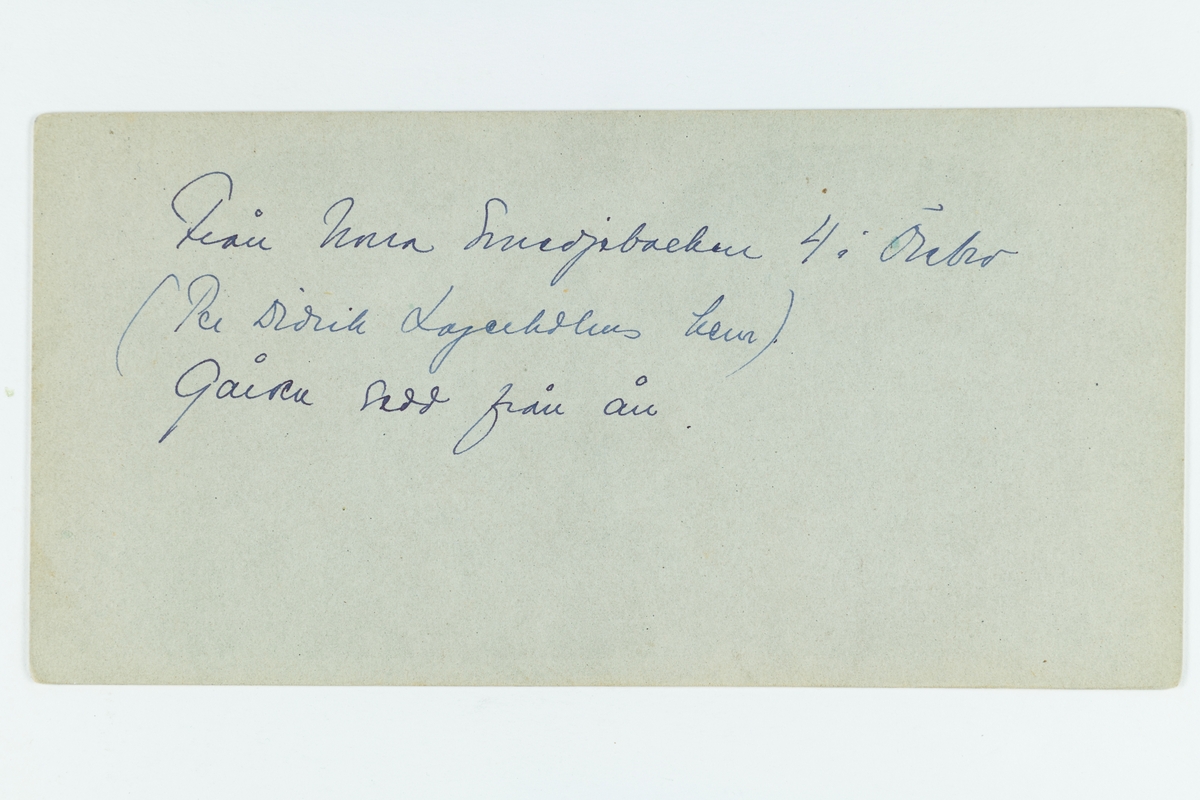 Från Norra Smedjebacken 4 i Örebro
(Per Didrik Lagerholms hem).
Gården sedd från ån